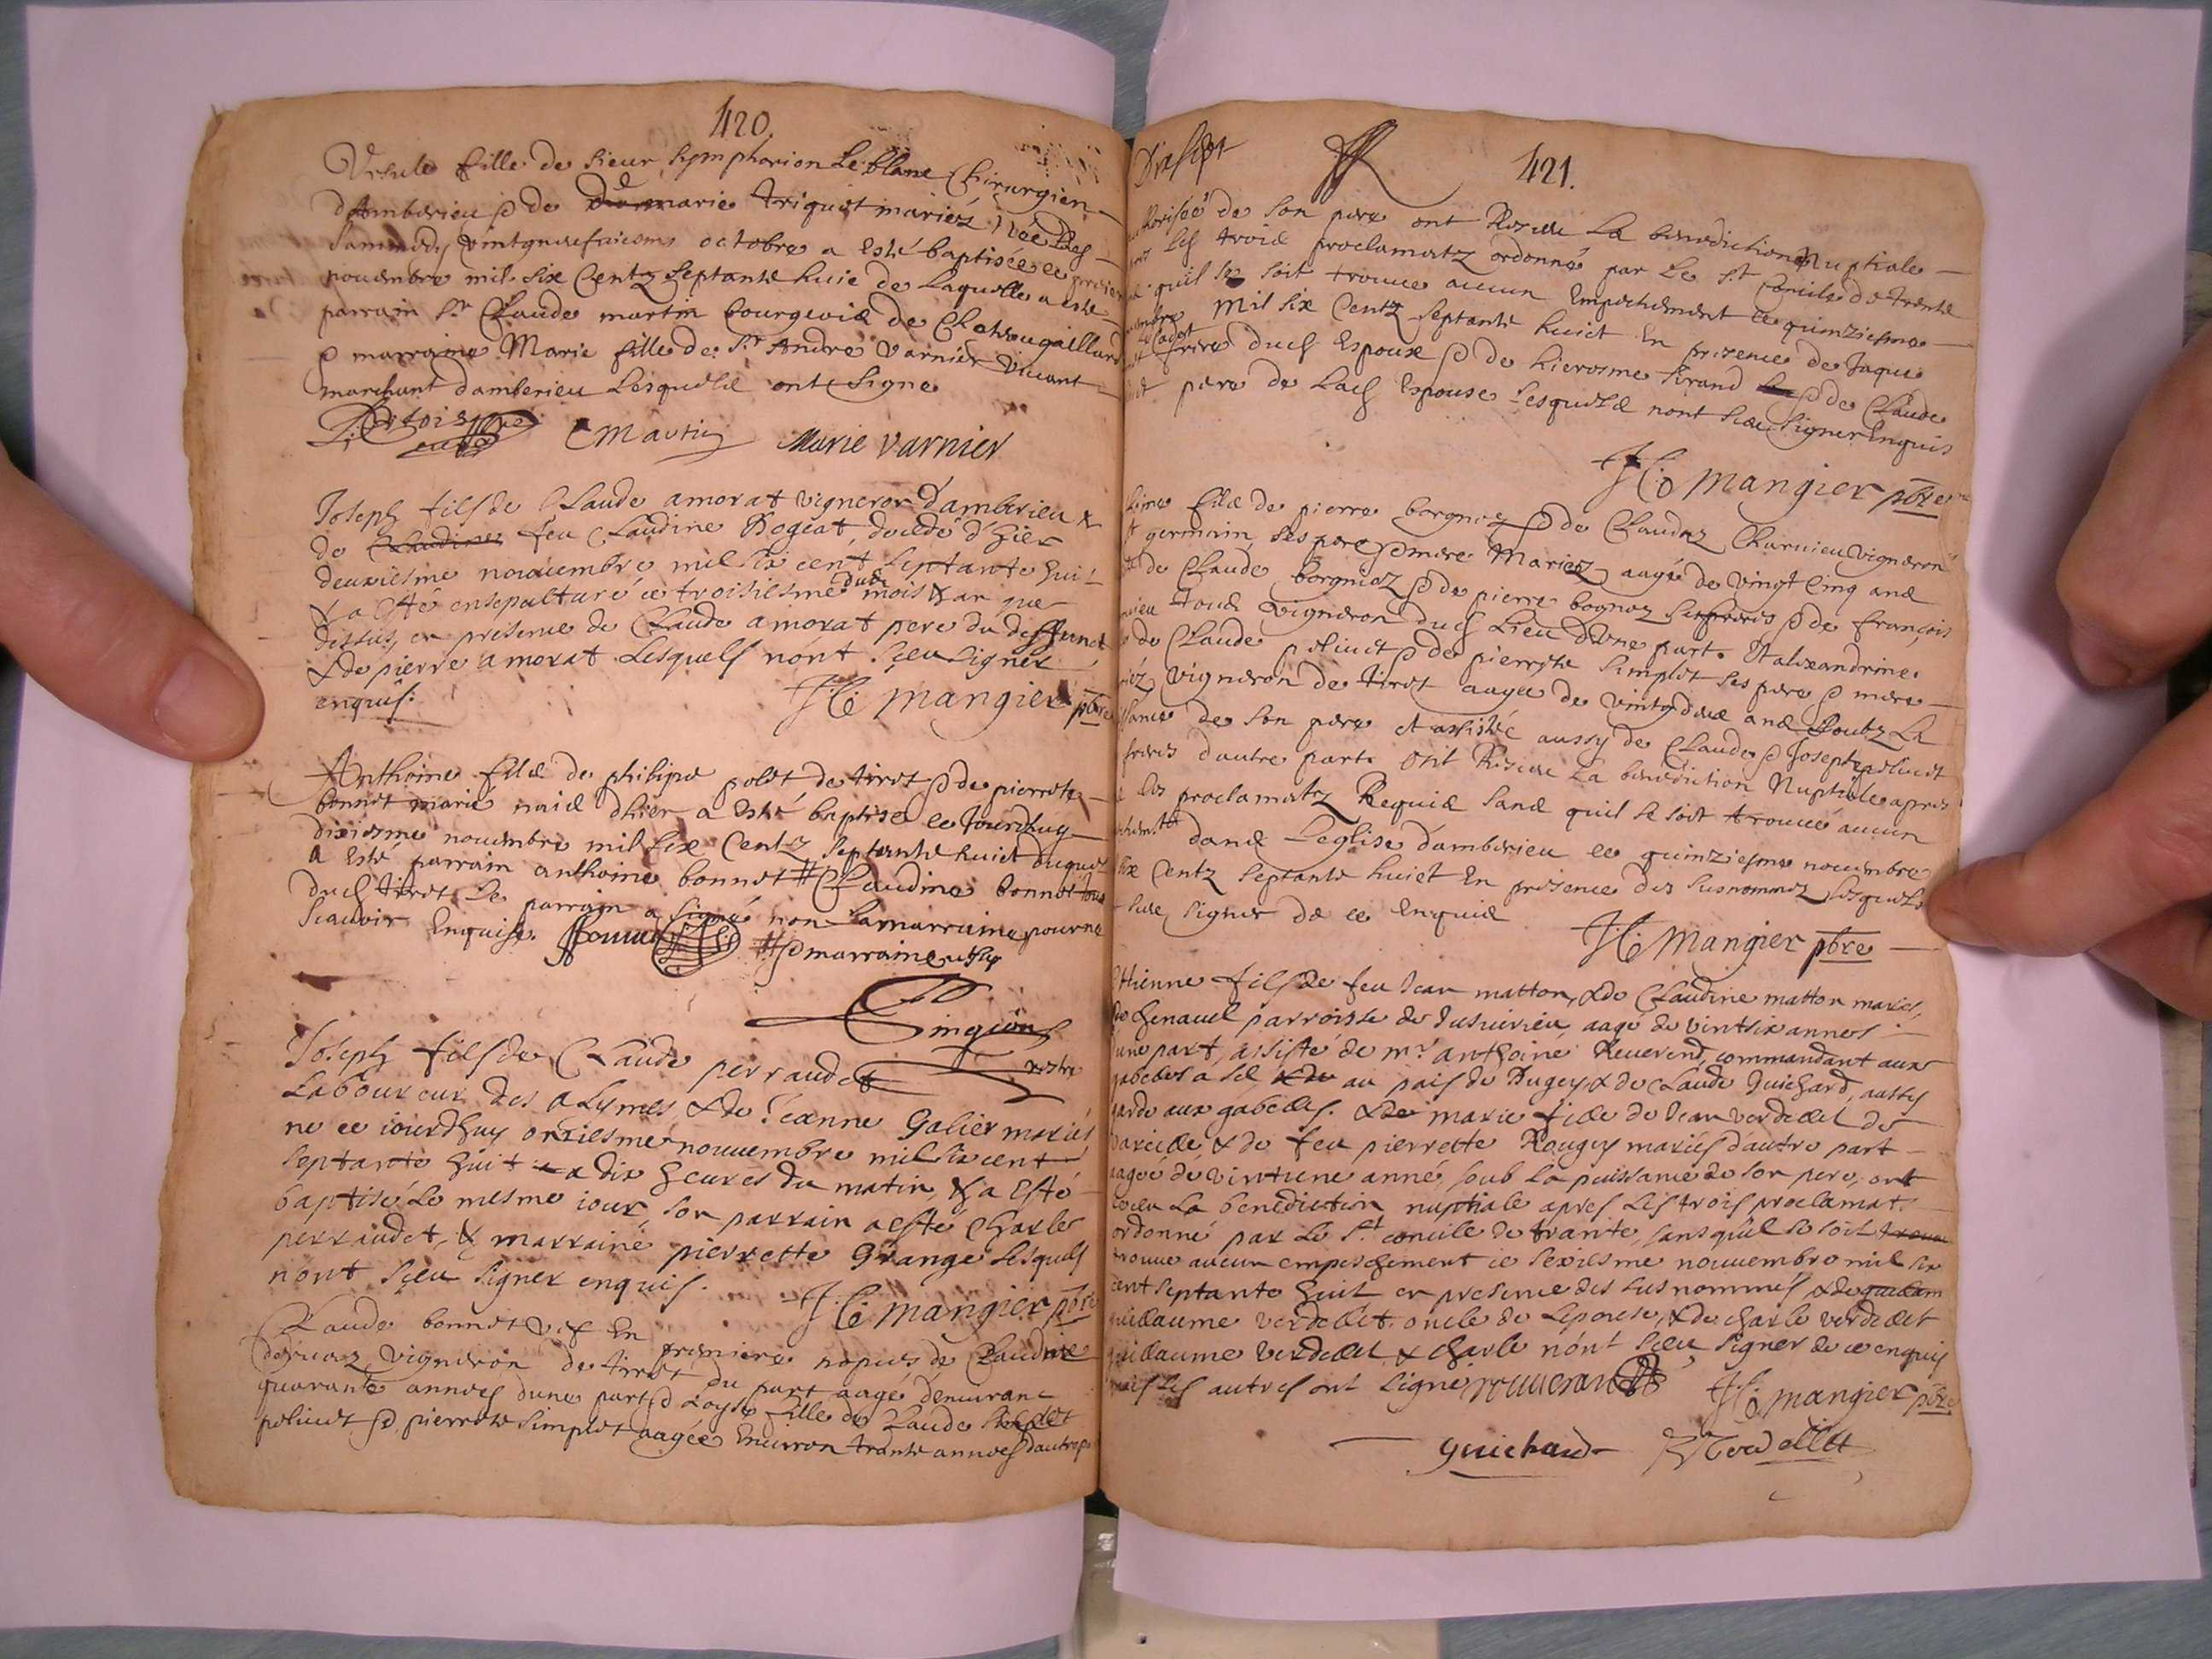 420.
Ursule fille de sieur Symphorion Le blanc Chirurgien
dAmberieu & de marie triquet mariéz née
Sammedy vintgneufuiesme octobre a esté baptisée ce premier
nouembre mil six Centz septante huic de Laquelle a esté
parrain Sr Claude martin bourgeois de Chateaugaillard
& marraine Marie fille de Sr André Varnier viuant
marchant damberieu Lesquelz ont signe
CMartin Marie varnier
Joseph fils de Claude amorat vigneron d'amberieu &
de Claudine feu Claudine Bogeat, decedé d'hier
deuxiesme nouuembre mil six cent septante hui-
& a esté ensepulturé ce troisiesme dud. mois & an que
dessus, en presence de Claude amorat pere du deffunct
& de pierre amorat Lesquels n'ont sçeu signer
enquis.
H C mangier pbre
Anthoine filz de philipe polet de tiret & de pierrete
bonnet marié naiz dhier a esté baptisé ce Jourdhuy
dixiesme nouembre mil six Centz septante huict duquel
a esté parrain anthoine bonnet # Claudine bonnet tous
dud tiret Le parrain a signé non La marraine pour ne
scauoir Enquise. # & marraine
Joseph fils de Claude perraudet
Laboureur des alymes & de Jeanne Galier mariés
ne ce iourdhuy onziesme nouuembre mil six cent
septante huit a dix heures du matin, & a esté
baptisé Le mesme iour, son parrain a esté Charles
perraudet, & marraine pierrette Grange Lesquels
n'ont sçeu signer enquis.
H C mangier pbre
Claude bonnet vef En premiere nopces de Claudine
vigneron de tiret du part aagé denuiran
quarante annees dune part & Loyse fille de Claude
poliuet & pierrete simplet aagée Enuiron trante annees dautrepa
421.
de son pere ont Receu La benediction Nuptiale
les troiz proclamatz ordonné par Le St Concile de trente
quil se soit trouue aucun Empechement ce quinziesme
mil six Centz septante huict En presence de Jaque
frere dud Espoux & de hierosme tirand & de Claude
pere de Lad Espouse Lesquelz nont sceu signer Enquis
H C mangier pbre
filz de pierre borgnoz & de Claudaz Charuieu vigneron
germain, ses pere & mere Mariez aagé de vingt Cinq anz
de Claude borgnioz & de pierre bognoz ses freres & de françois
touz vigneron dud Lieu dune part. Et alexandrine
de Claude poliuet & de pierrete simplet ses pere & mere
vigneron de tiret aagee de vintg deux anz soubz La
de son pere et assistée aussy de Claude & Joseph poliuet
freres dautre part. Ont Receu La benediction Nuptiale apres
les proclamatz Requiz sanz quil se soit trouué aucun
danz Leglise damberieu ce quinziesme nouembre
six Centz septante huict En presence des susnommez Lesquelz
signer de ce Enquiz
H C mangier pbre
Etienne fils de feu Jean matton, & de Claudine matton mariés,
de Chenauel parroisse de Jusuirieu, aagé de vintsix annees
d'une part, assisté de mr anthoine Reuerend, commandant aux
gabelles a sel au païs de Bugey & de Claude Guichard, aussy
garde aux gabelles. & de marie fille de Jean verdellet de
& de feu pierrette Rougey mariés d'autre part
aagée de vintune anné, soub La puissance de son pere, ont
receu La benediction nuptiale apres Les trois proclamat.
ordonné par Le St concile de trante, sans qu'il se soit
trouue aucun empeschement ce sexiesme nouuembre mil six
cent septante huit en presence des susnommés, & de
guillaume verdellet oncle de Lepouse, & de charle verdellet
guillaume verdellet & charle n'ont sceu signer de ce enquis
mais Les autres ont signé
H C mangier pbre
guichard Verdellet